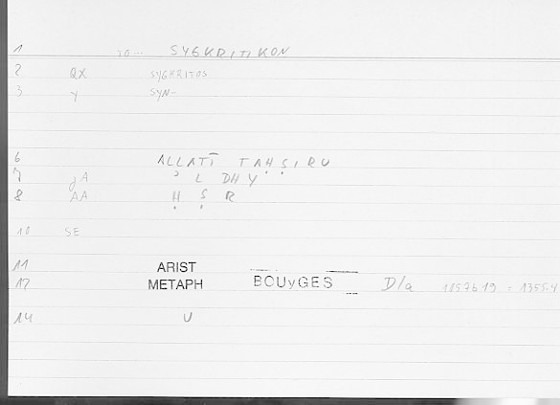 1 TO... SYGKRITIKON
2 QX SYGKRITOS
3 Y SYN-
6 ALLATĪ TAḤṢIRU
7 gA L DHY
8 AA Ḥ Ṣ R
10 SE
11 ARIST
12 METAPH BOUyGES D/a
14 U